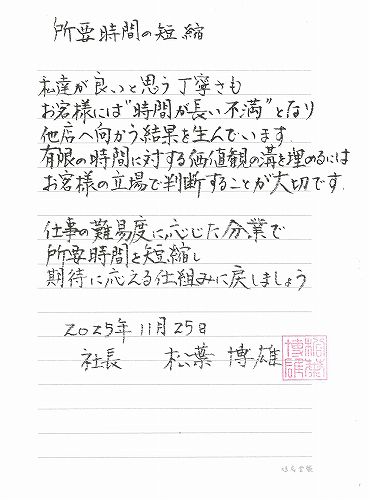 所要時間の短縮
私達が良いと思う丁寧さも
お客様には"時間が長い不満"となり
他店へ向かう結果を生んでいます.
有限の時間に対する価値観の溝を埋めるには
お客様の立場で判断することが大切です.
仕事の難易度に応じた分業で
所要時間を短縮し
期待に応える仕組みに戻しましょう
2025年11月25日
社長 松葉 博雄